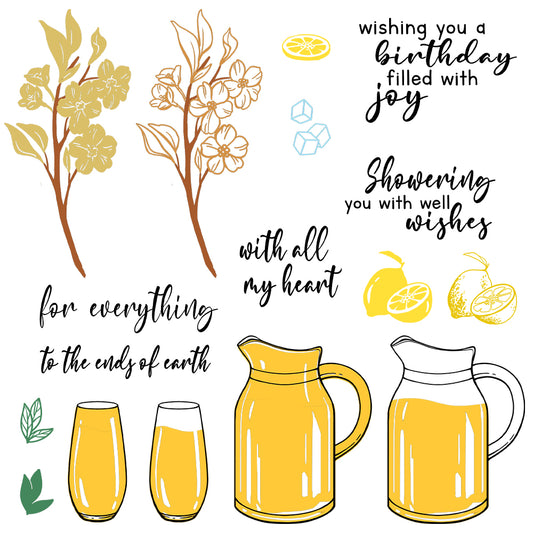 wishing you a
birthday
filled with
joy
Showering
you with well
wishes
with all
my heart
for everything
to the ends of earth